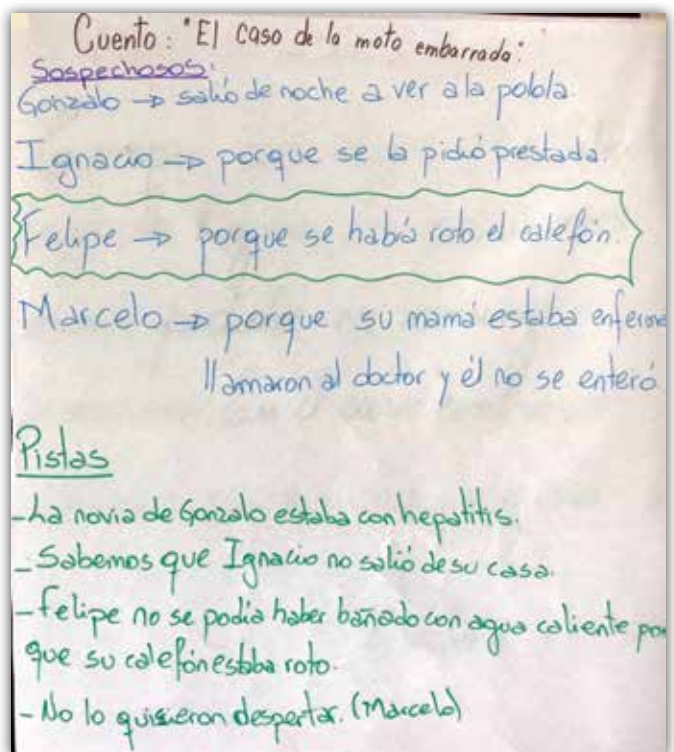 Cuento: "El caso de la moto embarrada".
Sospechosos:
Gonzalo → salió de noche a ver a la polola.
Ignacio → porque se la pidió prestada.
Felipe → porque se había roto el calefón.
Marcelo → porque su mamá estaba enferma
llamaron al doctor y él no se enteró
Pistas
- La novia de Gonzalo estaba con hepatitis.
- Sabemos que Ignacio no salió de su casa.
- Felipe no se podía haber bañado con agua caliente por
que su calefón estaba roto.
- No lo quisieron despertar. (Marcelo)